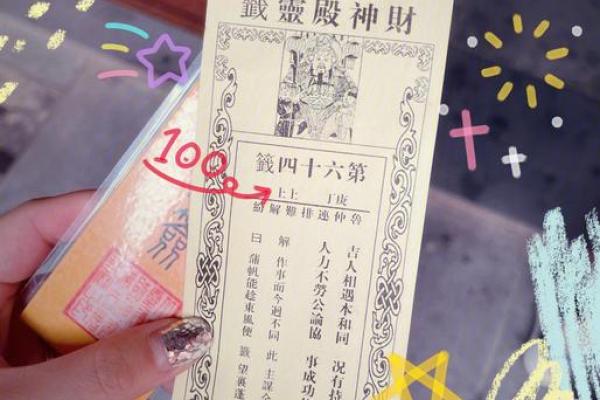 財神殿靈籤
100
第六十四籤
庚丁 上上
魯仲連排難解紛
吉人相遇本和同 況有持
人力不勞公論協 事成功
解 作事而今迥不同 此 主謀
曰 蒲帆能趂東風便 籤 望裏蓬